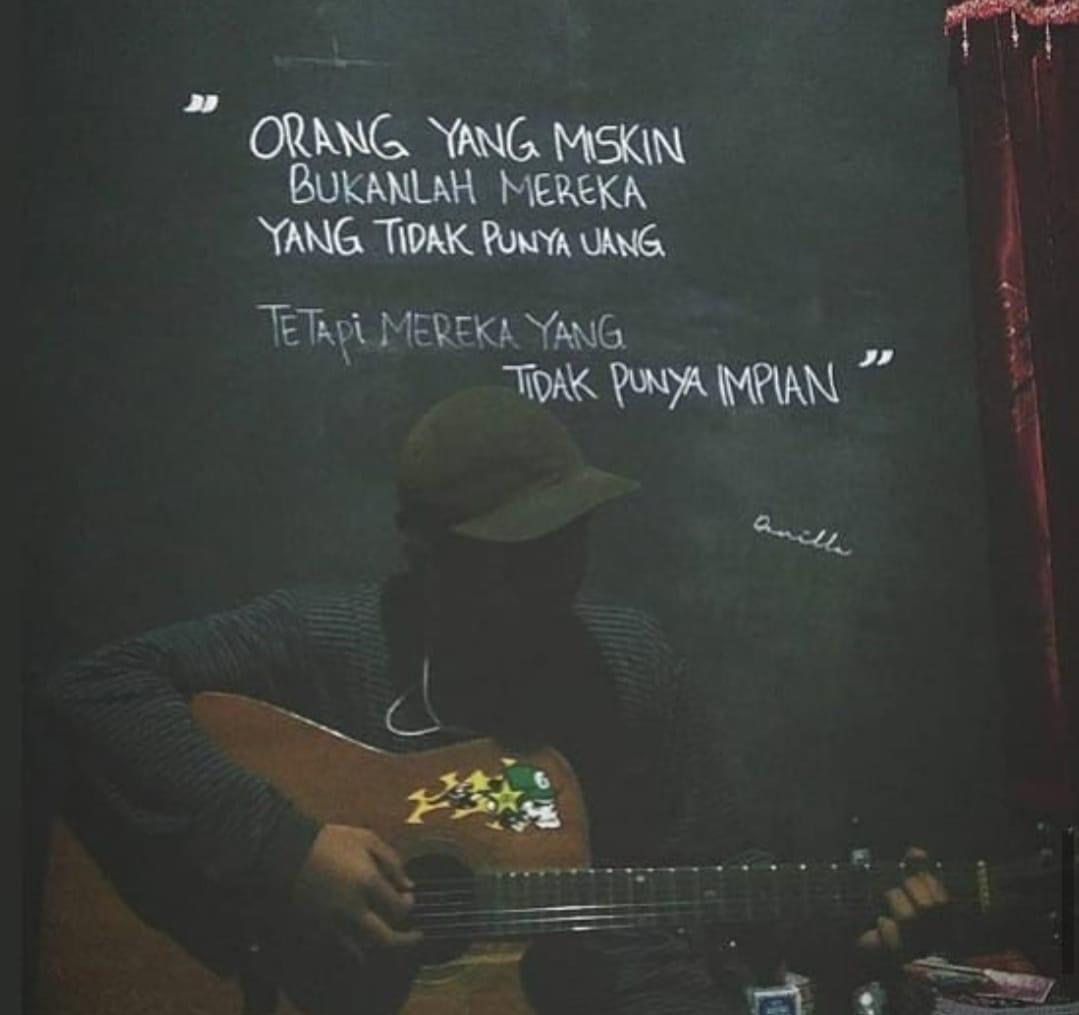 " ORANG YANG MISKIN
BUKANLAH MEREKA
YANG TIDAK PUNYA UANG
TETAPi MEREKA YANG
TIDAK PUNYA IMPIAN "
G